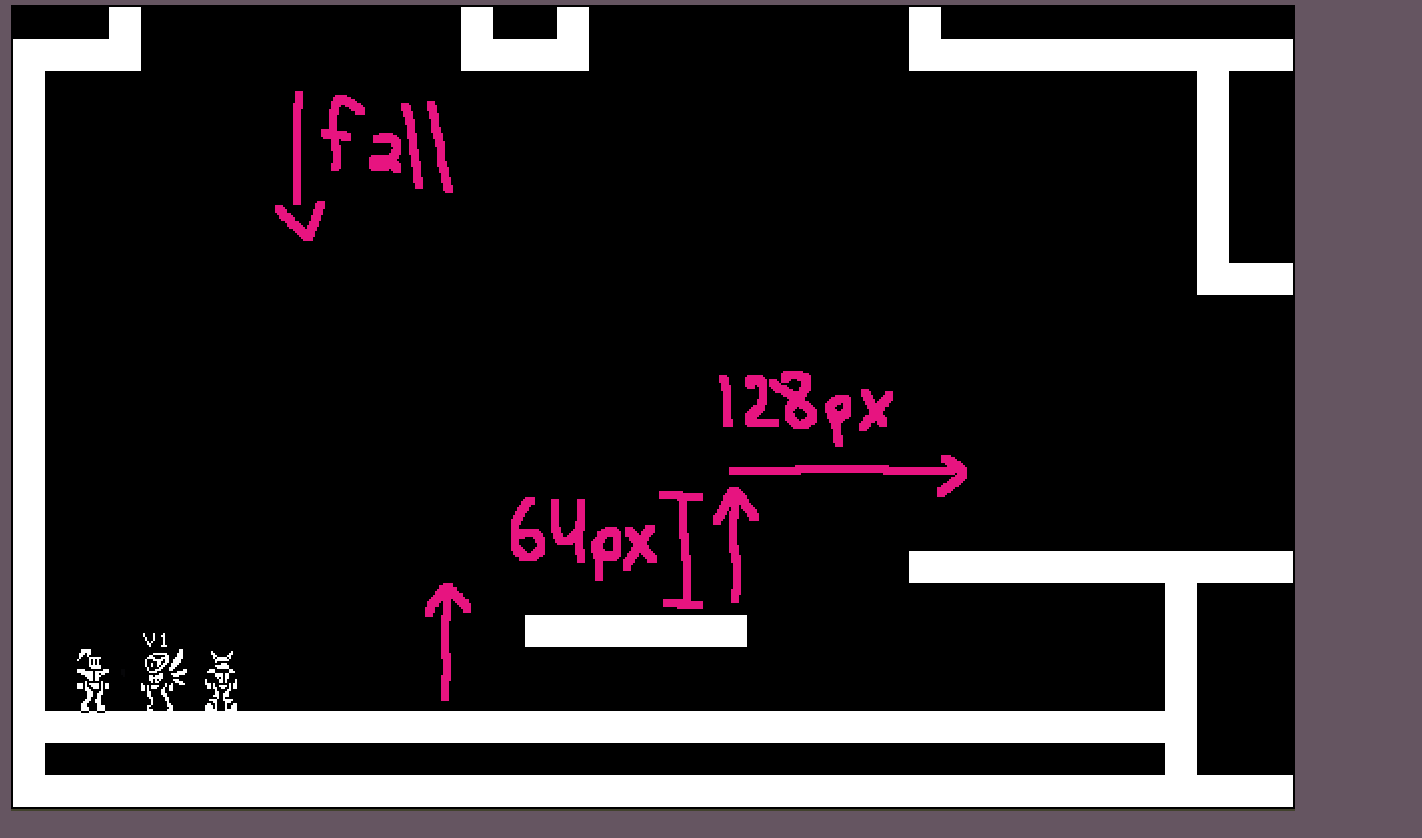 fall
128px
64px
V1